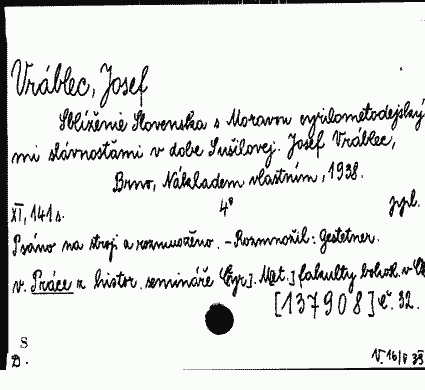 Vráblec, Josef
Sblížénie Slovenska s Moravou cyrilometodejský
mi slávnosťami v dobe Sušilovej. Josef Vráblec,
Brno, Nákladem vlastním, 1938.
XI, 141 s. 4°
Psáno na stroji a rozmnoženo. – Rozmnožil: Gestetner.
v. Práce z histor. semináře Cyr]. Met.] fakulty bohosl. v
[137908] č. 32.
S
D.
V. 16/II 39